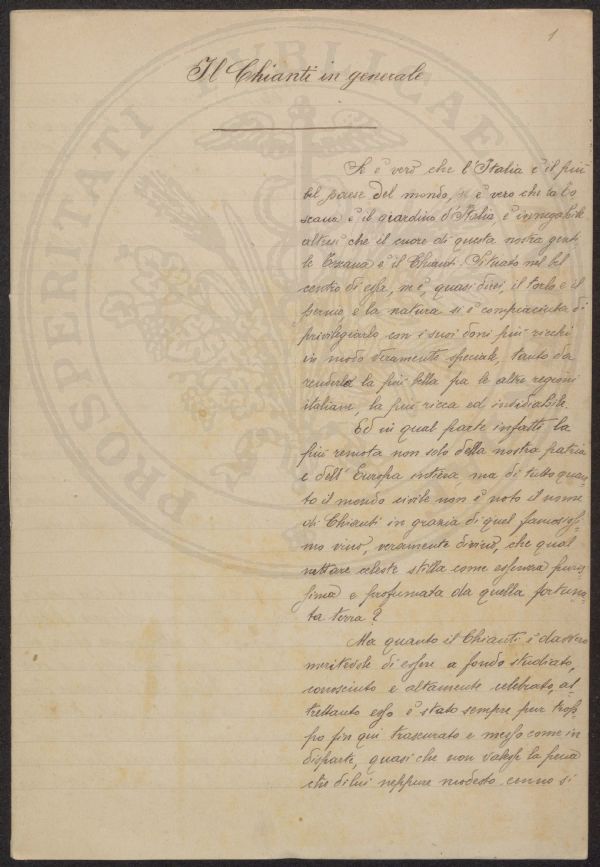 1
Il Chianti in generale
Se è vero che l'Italia è il più
bel paese del mondo, se è vero che la To
scana è il giardino d'Italia è innegabile
altresì che il cuore di questa nostra genti
le Toscana è il Chianti. Situato nel bel
centro di essa, n'è, quasi direi, il torlo e il
perno, e la natura si è compiaciuta di
privilegiarlo con i suoi doni più ricchi
in modo veramente speciale, tanto da
renderla la più bella fra le altre regioni
italiane, la più ricca ed invidiabile.
Ed in qual parte infatti la
più remota non solo della nostra patria
e dell'Europa intiera, ma di tutto quan-
to il mondo civile non è noto il nome
di Chianti in grazia di quel famosissi-
mo vino, veramente divino, che qual
nettare celeste stilla come essenza puris-
sima e profumata da quella fortuna-
ta terra?
Ma quanto il Chianti è davvero
meritevole di essere a fondo studiato,
conosciuto e altamente celebrato, al-
trettanto esso è stato sempre pur trop-
po fin qui trascurato e messo come in
disparte, quasi che non valesse la pena
che di lui neppure modesto cenno si
PROSPERITATI PUBLICAE